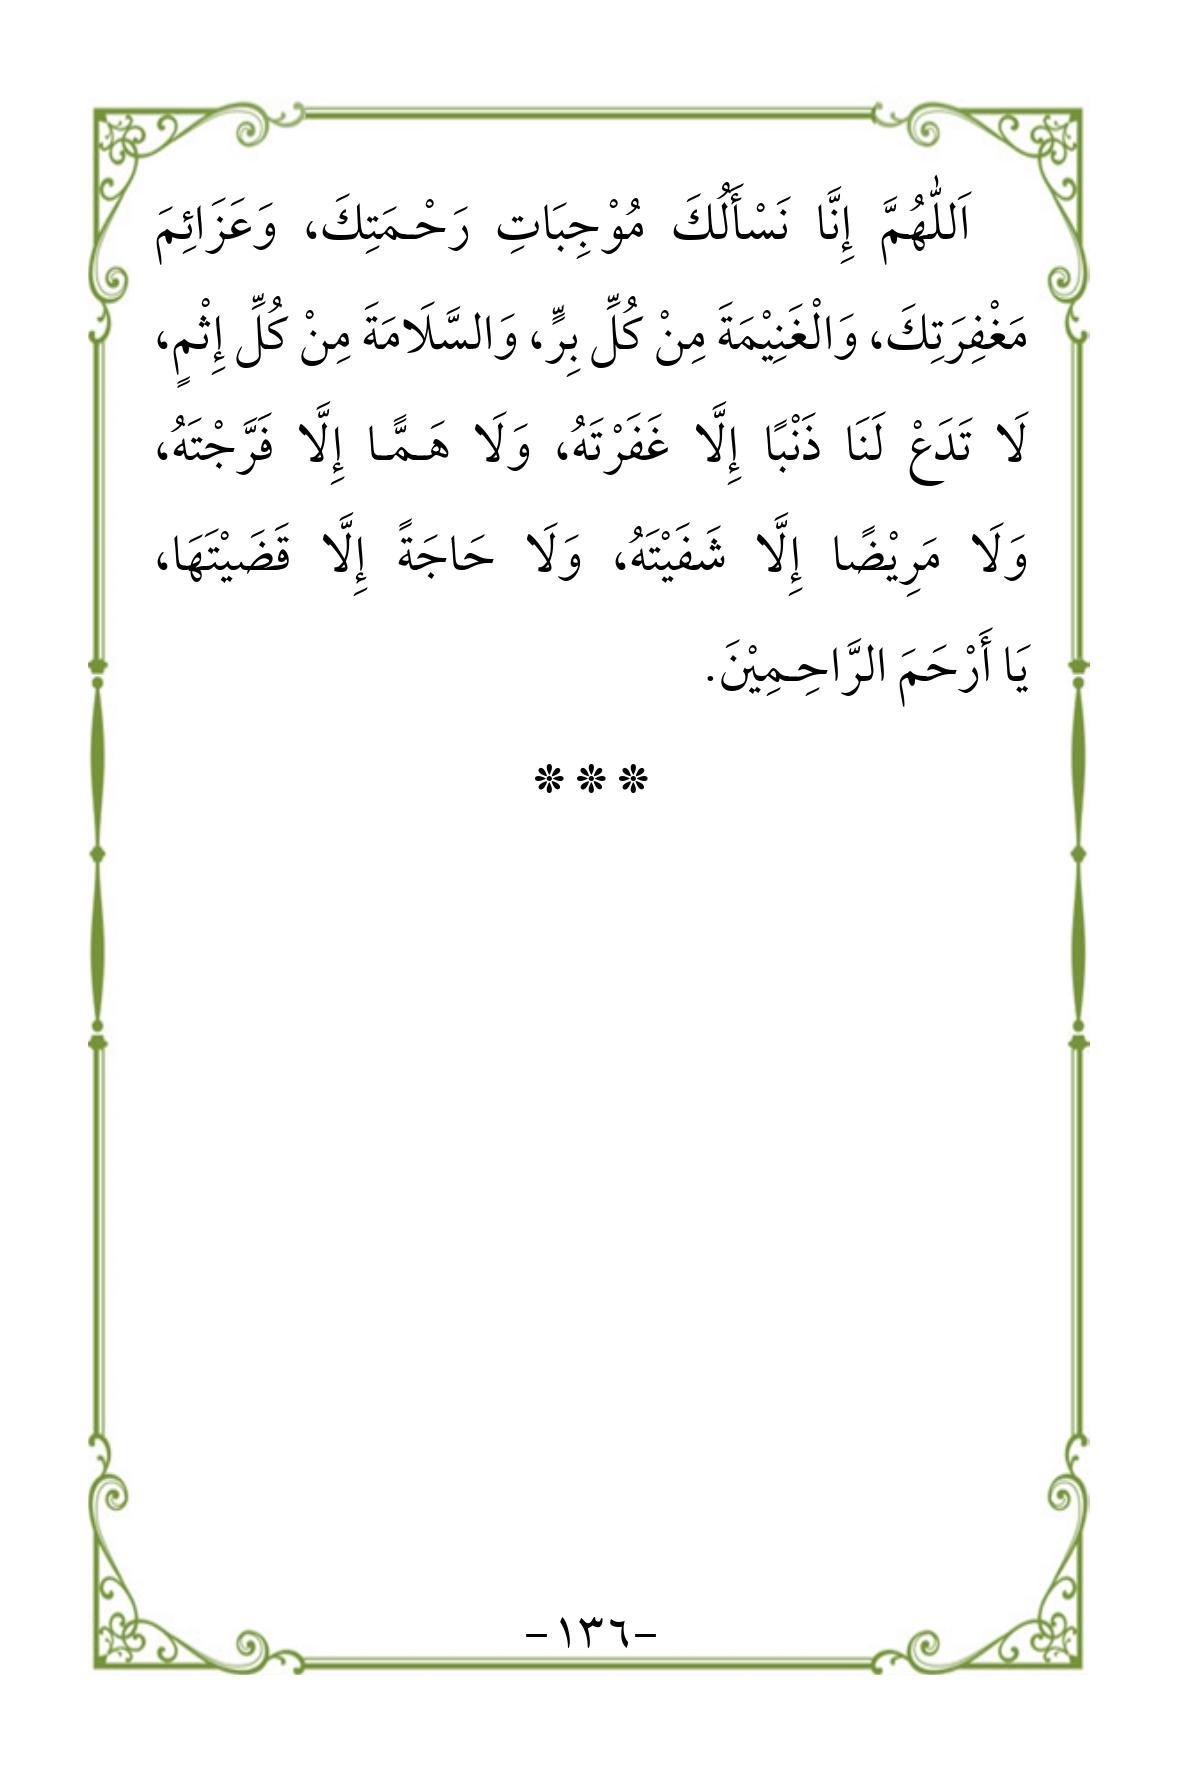 اَللّٰهُمَّ إِنَّا نَسْأَلُكَ مُوْجِبَاتِ رَحْـمَتِكَ، وَعَزَائِمَ
مَغْفِرَتِكَ، وَالْغَنِيْمَةَ مِنْ كُلِّ بِرٍّ، وَالسَّلَامَةَ مِنْ كُلِّ إِثْمٍ،
لَا تَدَعْ لَنَا ذَنْبًا إِلَّا غَفَرْتَهُ، وَلَا هَـمًّـا إِلَّا فَرَّجْتَهُ،
وَلَا مَرِيْضًا إِلَّا شَفَيْتَهُ، وَلَا حَاجَةً إِلَّا قَضَيْتَهَا،
يَا أَرْحَمَ الرَّاحِـمِيْنَ.
❊ ❊ ❊
-١٣٦-